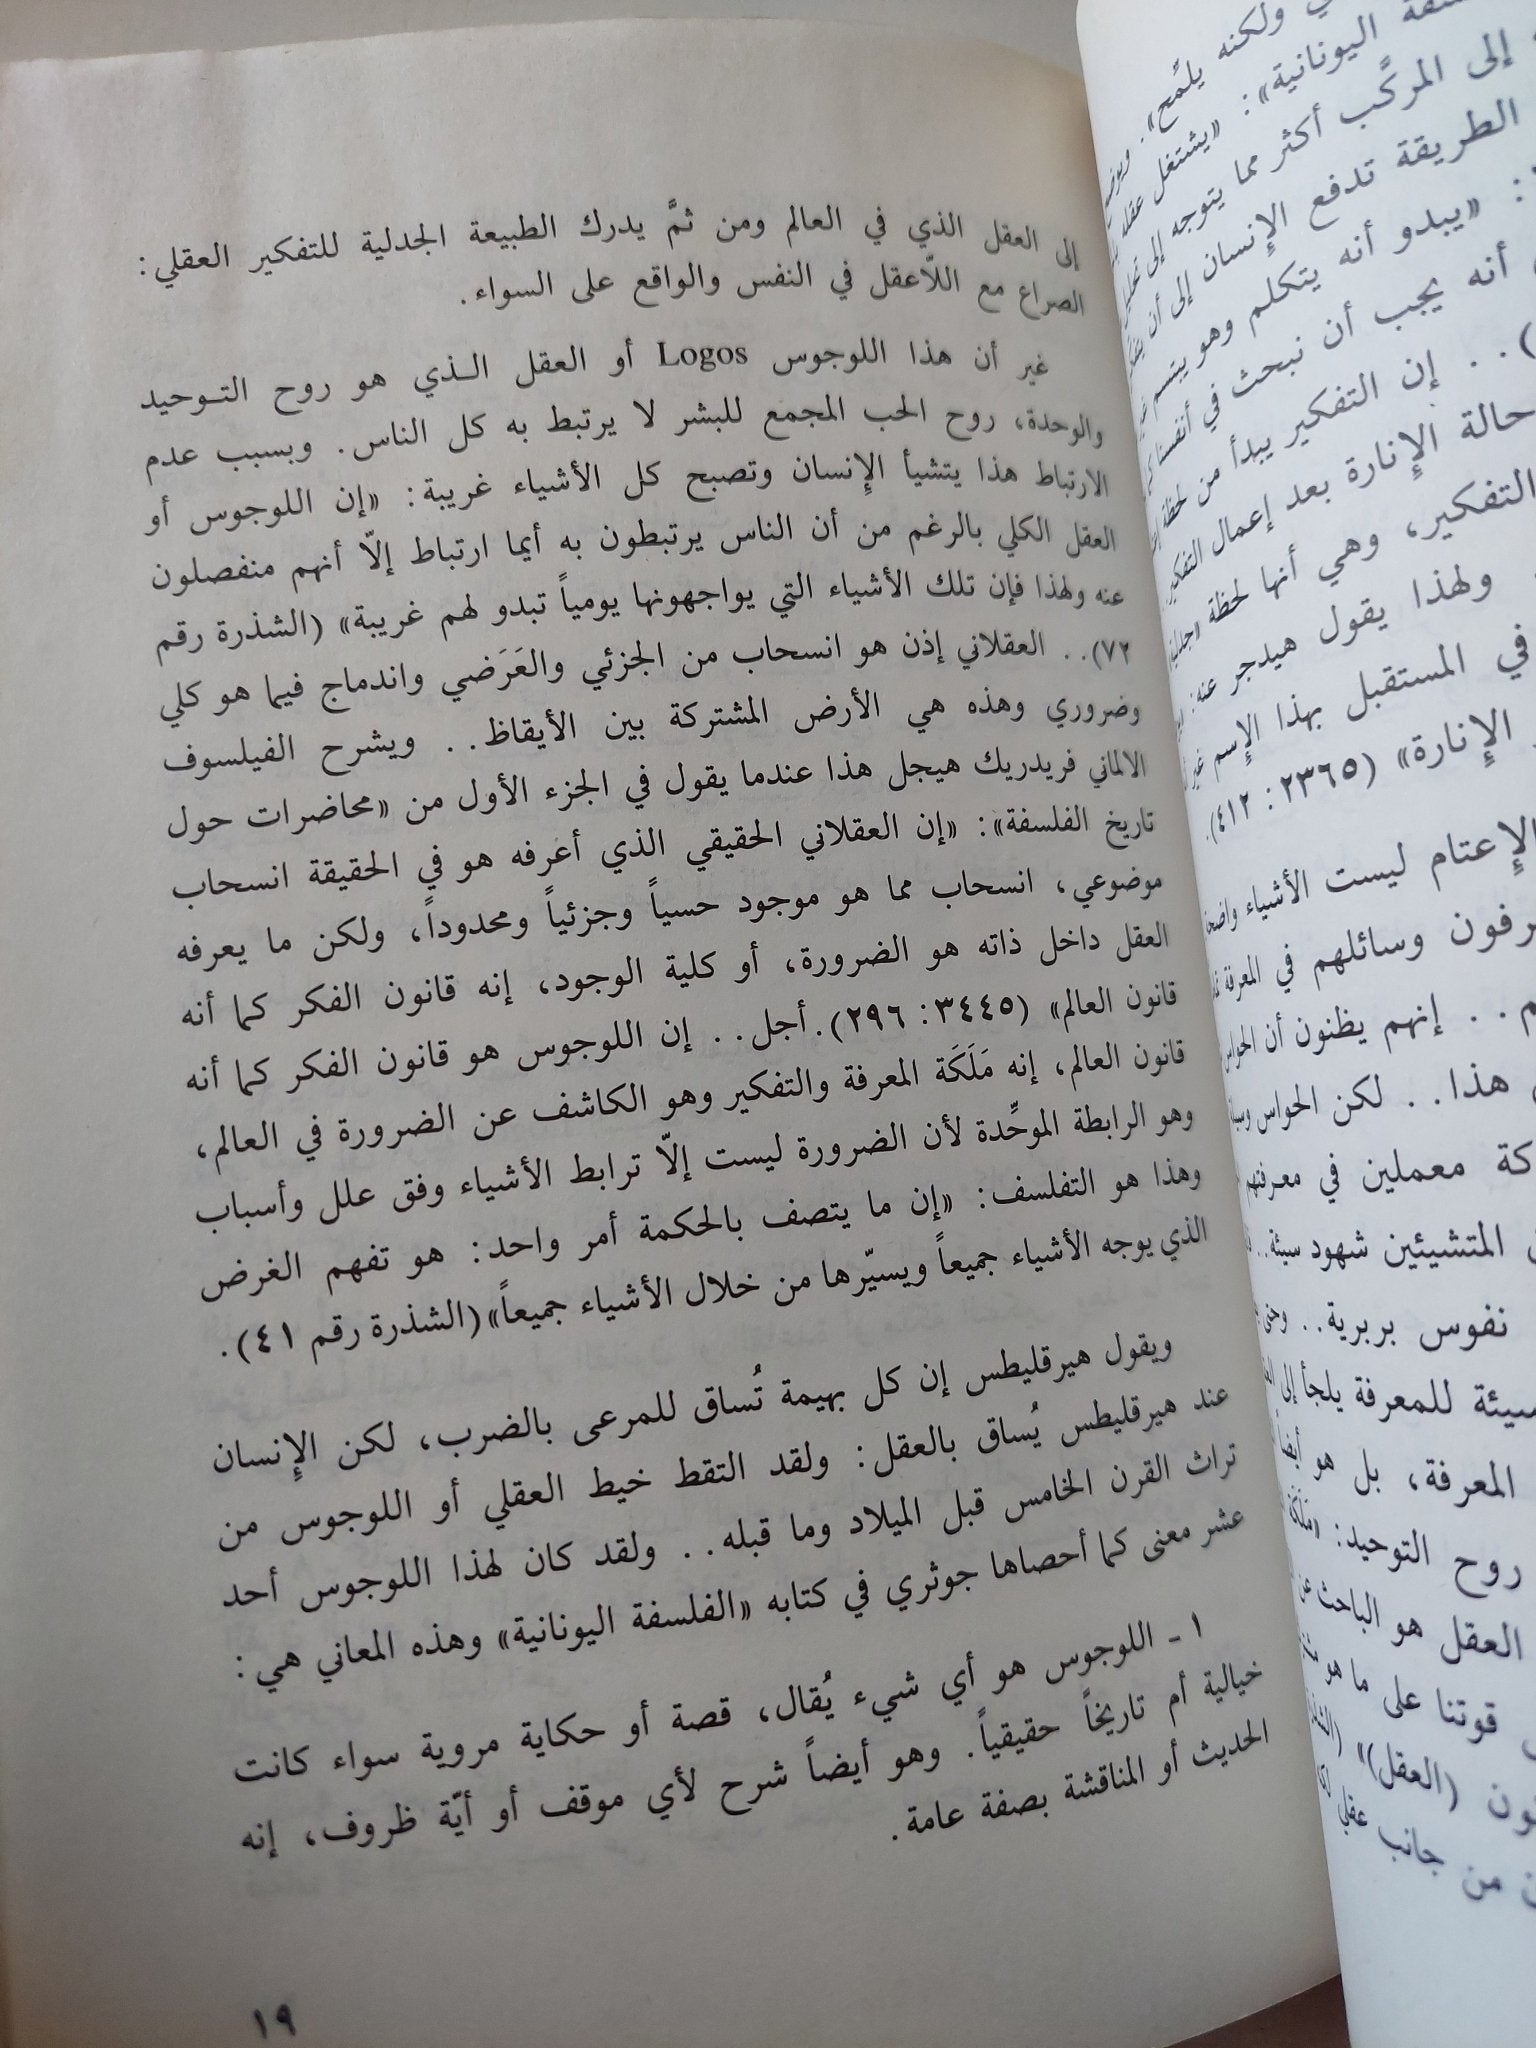 إلى العقل الذي في العالم ومن ثمَّ يدرك الطبيعة الجدلية للتفكير العقلي:
الصراع مع اللاّعقل في النفس والواقع على السواء.
غير أن هذا اللوجوس Logos أو العقل الذي هو روح التوحيد
والوحدة، روح الحب المجمع للبشر لا يرتبط به كل الناس. وبسبب عدم
الارتباط هذا يتشيأ الإنسان وتصبح كل الأشياء غريبة: «إن اللوجوس أو
العقل الكلي بالرغم من أن الناس يرتبطون به أيما ارتباط إلاّ أنهم منفصلون
عنه ولهذا فإن تلك الأشياء التي يواجهونها يومياً تبدو لهم غريبة» (الشذرة رقم
٧٢).. العقلاني إذن هو انسحاب من الجزئي والعَرَضي واندماج فيما هو كلي
وضروري وهذه هي الأرض المشتركة بين الأيقاظ.. ويشرح الفيلسوف
الالماني فريدريك هيجل هذا عندما يقول في الجزء الأول من «محاضرات حول
تاريخ الفلسفة»: «إن العقلاني الحقيقي الذي أعرفه هو في الحقيقة انسحاب
موضوعي، انسحاب مما هو موجود حسياً وجزئياً ومحدوداً، ولكن ما يعرفه
العقل داخل ذاته هو الضرورة، أو كلية الوجود، إنه قانون الفكر كما أنه
قانون العالم» (٣٤٤٥: ٢٩٦). أجل.. إن اللوجوس هو قانون الفكر كما أنه
قانون العالم، إنه مَلَكَة المعرفة والتفكير وهو الكاشف عن الضرورة في العالم،
وهو الرابطة الموحِّدة لأن الضرورة ليست إلاّ ترابط الأشياء وفق علل وأسباب
وهذا هو التفلسف: «إن ما يتصف بالحكمة أمر واحد: هو تفهم الغرض
الذي يوجه الأشياء جميعاً ويسيّرها من خلال الأشياء جميعاً» (الشذرة رقم ٤١).
ويقول هيرقليطس إن كل بهيمة تُساق للمرعى بالضرب، لكن الإنسان
عند هيرقليطس يُساق بالعقل: ولقد التقط خيط العقلي أو اللوجوس من
تراث القرن الخامس قبل الميلاد وما قبله.. ولقد كان لهذا اللوجوس أحد
عشر معنى كما أحصاها جوثري في كتابه «الفلسفة اليونانية» وهذه المعاني هي:
١ - اللوجوس هو أي شيء يُقال، قصة أو حكاية مروية سواء كانت
خيالية أم تاريخاً حقيقياً. وهو أيضاً شرح لأي موقف أو أيّة ظروف، إنه
الحديث أو المناقشة بصفة عامة.
١٩
ولكنه يلمِّح».
اليونانية»: «يشتغل عقله
إلى المركَّب أكثر مما يتوجه إلى
الطريقة تدفع الإنسان إلى أن
: «يبدو أنه يتكلم وهو يتسم
أنه يجب أن نبحث في أنفسنا
).. إن التفكير يبدأ من لحظة
حالة الإنارة بعد إعمال التفكير
التفكير، وهي أنها لحظة
ولهذا يقول هيدجر عنه:
في المستقبل بهذا الإسم غير
الإنارة» (٢٣٦٥: ٤١٢).
الإعتام ليست الأشياء
وسائلهم في المعرفة
.. إنهم يظنون أن
هذا.. لكن الحواس
معملين في معرفتهم
المتشيئين شهود سيئة..
نفوس بربرية..
للمعرفة يلجأ إلى
المعرفة، بل هو أيضاً
روح التوحيد:
العقل هو الباحث عن
قوتنا على ما هو
(العقل)»
من جانب